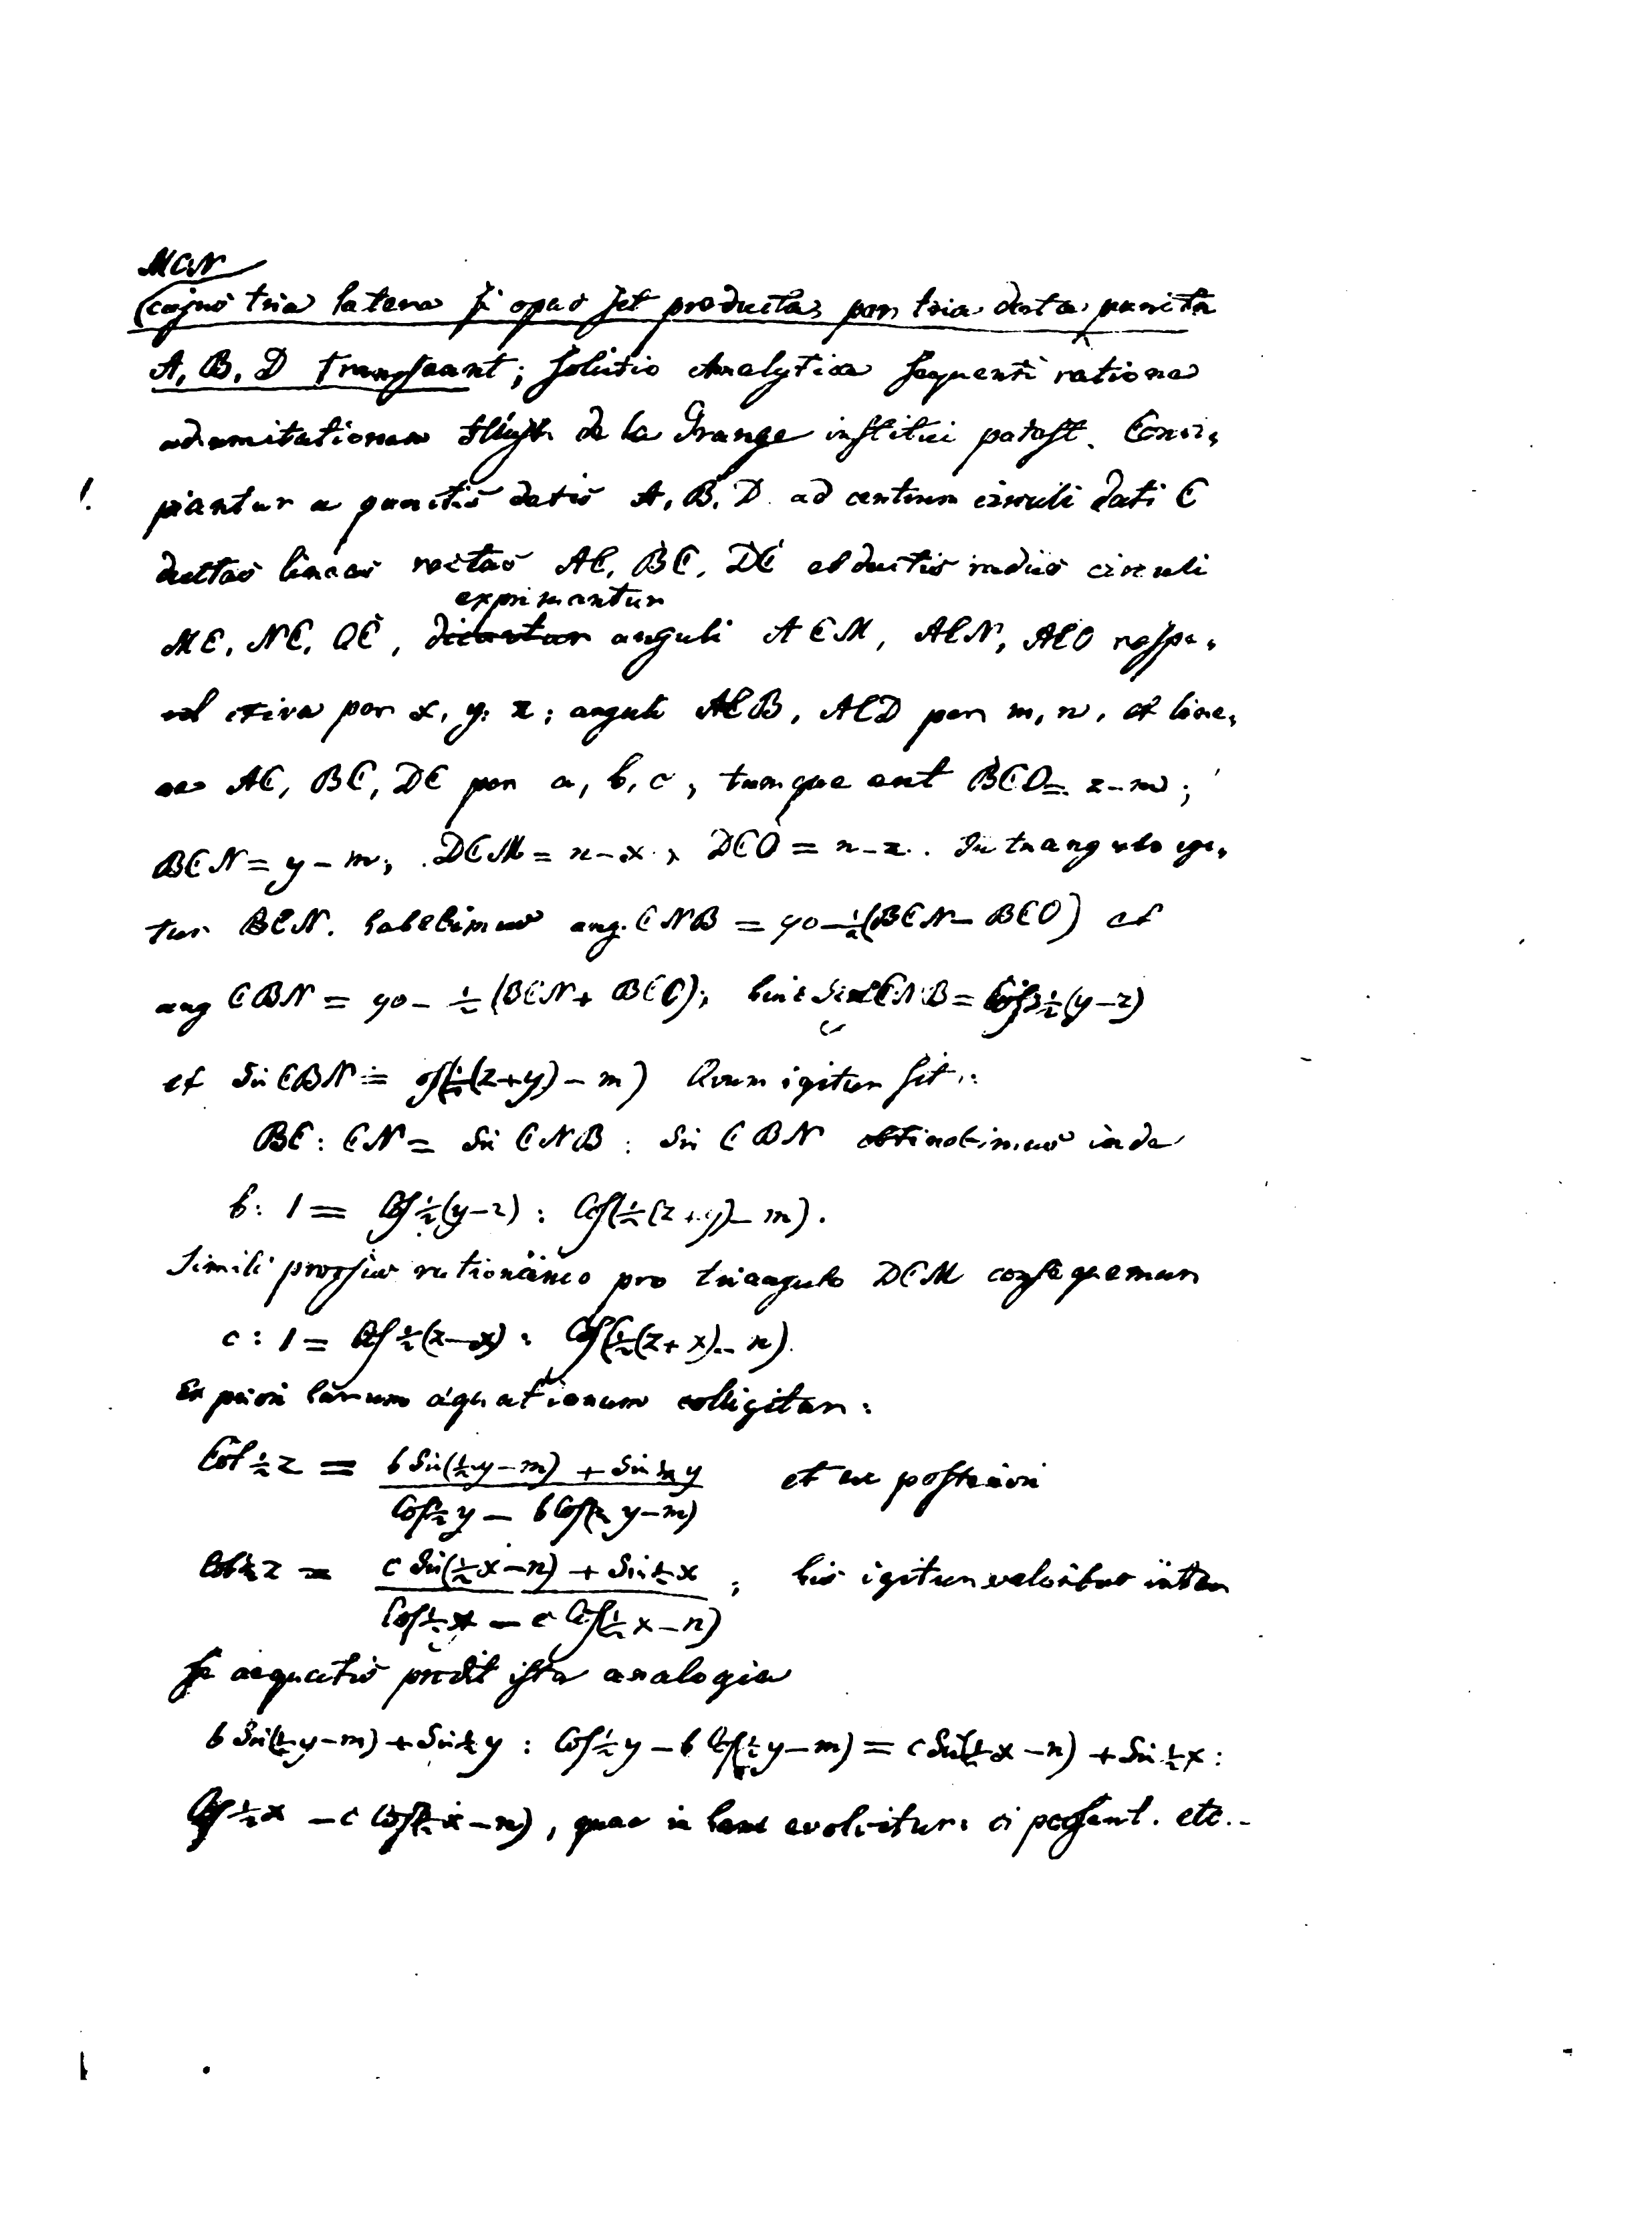 MCN
(cujus tria latera si opus sit producta, per tria data puncta
A, B, D transeant; solutio Analytica sequenti ratione
ad imitationem Illustr. de la Grange institui potest. Conci,
piantur a punctis datis A, B, D ad centrum circuli dati C
ductas lineas rectas AC, BC, DC et ductis radiis circuli
exprimantur
MC, NC, OC, dicantur anguli ACM, ACN, ACO respe,
ctive per x, y, z; anguli ACB, ACD per m, n, et line,
ae AC, BC, DC per a, b, c, tumque erit BCO = z - m;
BCN = y - m, DCM = n - x, DCO = n - z. In triangulo igi,
tur BCN. habebimus ang. CNB = 90 - ½(BCN - BCO) et
ang CBN = 90 - ½(BCN + BCO); hinc Sin CNB = Cos ½(y - z)
et Sin CBN = Cos(½(z + y) - m) Quum igitur sit:
BC : CN = Sin CNB : Sin CBN obtinebimus inde
b : 1 = Cos ½(y - z) : Cos(½(z + y) - m).
Simili prorsus ratiocinio pro triangulo DCM consequemur
c : 1 = Cos ½(z - x) : Cos(½(z + x) - n).
Ex priori harum aequationum colligitur:
Cot ½ z = b Sin(½ y - m) + Sin ½ y / Cos ½ y - b Cos(½ y - m) et ex posteriori
Cot ½ z = c Sin(½ x - n) + Sin ½ x / Cos ½ x - c Cos(½ x - n) ; his igitur valoribus inter
se aequatis prodit ista analogia
b Sin(½ y - m) + Sin ½ y : Cos ½ y - b Cos(½ y - m) = c Sin(½ x - n) + Sin ½ x :
Cos ½ x - c Cos(½ x - n), quae in hanc evolvitur: etc..